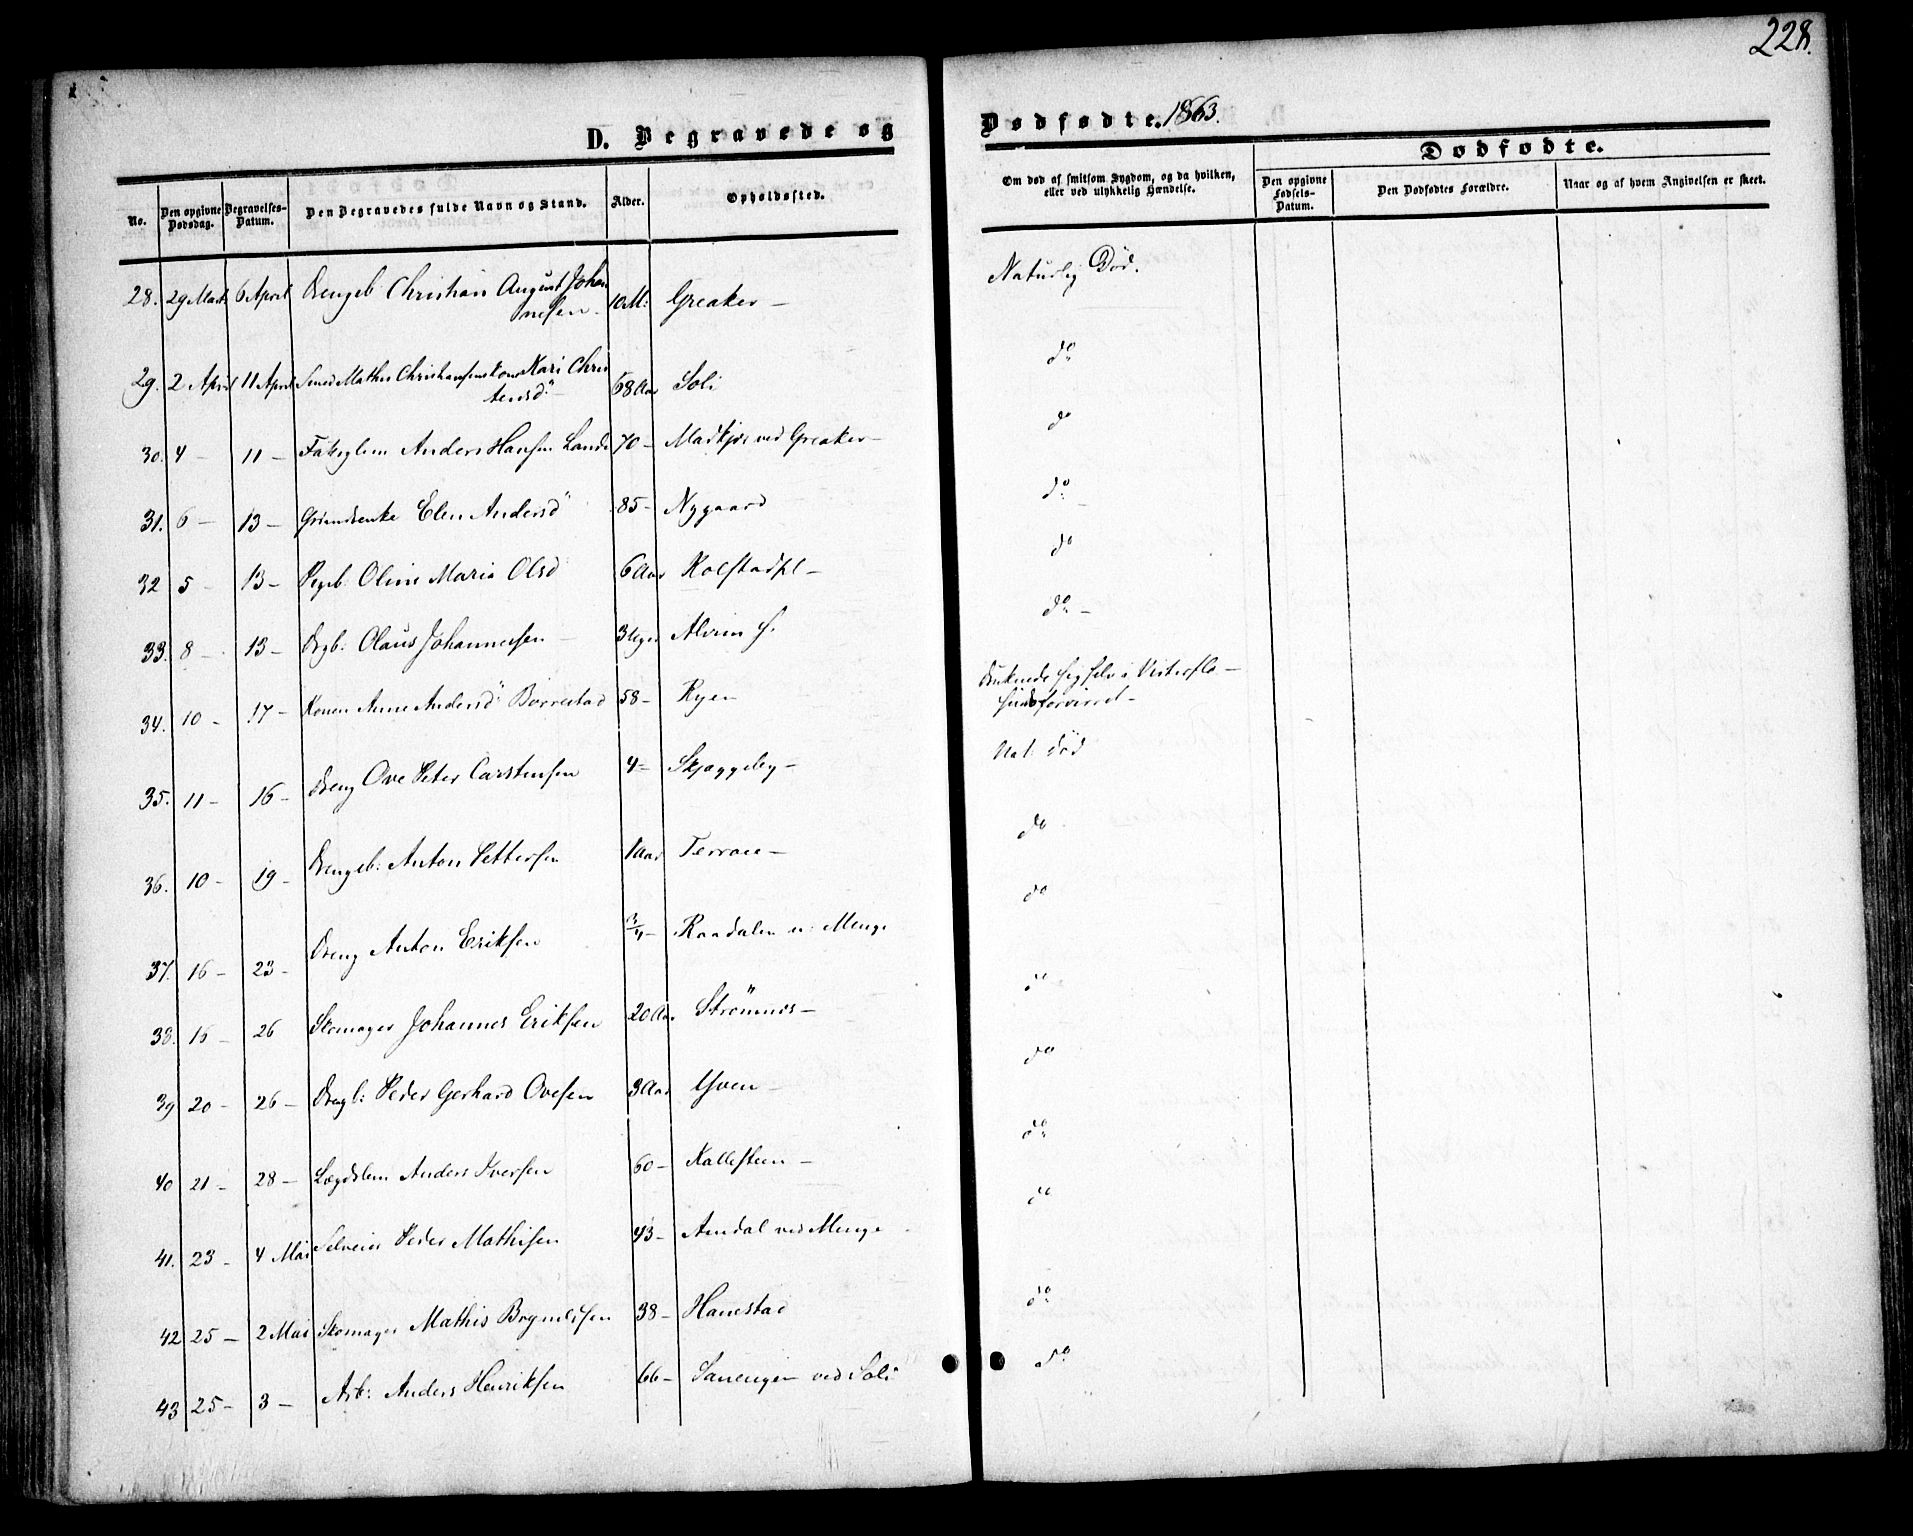 228.
D. Begravede og Dødfødte. 1863.
Dødfødte.
No. Den opgivne Dødsdag. Begravelses-Datum. Den Begravedes fulde Navn og Stand. Alder. Opholdssted. Om død af smitsom Sygdom, og da hvilken, eller ved ulykkelig Hændelse. Den opgivne Fødsels-Datum. Den Dødfødtes Forældre. Naar og af hvem Angivelsen er skeet.
28. 29 Marts 6 April Drengeb Christian August Johan Greaker – Naturlig Død.
nesen – 10 M:
29. 2 April 11 April Smed Mathis Christiansens Kone Kari Chris 68 Aar Soli do
tensd" –
30. 4 – 11 – Fattiglem Anders Hansen Lande 70 – ved Greaker – do
31. 6 – 13 – Elen Andersd" 85 – Nygaard do
32 5 – 13 – Pigeb. Oline Maria Olsd 6 Aar Kolstadpl – do
33. 8 – 13 – Drgb: Olaus Johannesen – 3 Uger Alvim do –
34. 10 – 17 – Konen Anne Andersd" Borrestad 58 – Ryen druknede sig selv i Visterflo –
Sindsforvirret –
35. 11 – 16 – Dreng Ove Peter Carstensen 4 – Skjæggeby – Nat: Død
36. 10 – 19 – Drengeb: Anton Pettersen 1 Aar Terrace – do
37. 16 – 23 – Dreng Anton Eriksen 3/4 – Raadalen u: Menge do
38. 16 – 26 Skomager Johannes Eriksen 20 Aar Strømnes – do
39 20 – 26 – Drengb: Peder Gerhard Ovesen 3 Aar Yven – do
40 21 – 28 – Lægdslem Anders Iversen 60 – Kallesteen – do
41. 23 – 4 Mai Selveier Peder Mathisen 43 – Aundal ved Menge do
42 25 – 2 Mai Skomager Mathis Bryneldsen 38 – Hanestad do
43 25 – 3 – Arb: Anders Henriksen 66 – ved Soli do